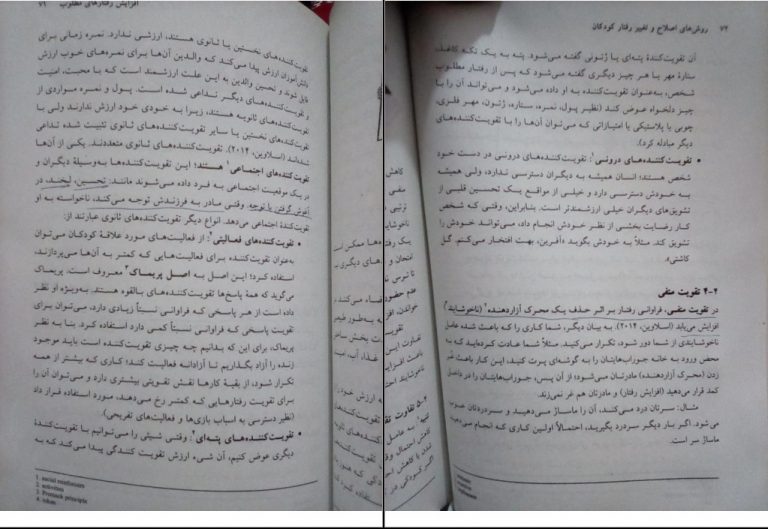 افزایش رفتارهای مطلوب ۷۱
تقویت‌کننده‌های نخستین یا ثانوی هستند، ارزشی ندارد. نمره زمانی برای
دانش‌آموزان ارزش پیدا می‌کند که والدین آن‌ها برای نمره‌های خوب ارزش
قایل شوند و تحسین والدین به این علت ارزشمند است که با محبت، امنیت
و تقویت‌کننده‌های دیگر تداعی شده است. پول و نمره مواردی از
تقویت‌کننده‌های ثانویه هستند، زیرا به خودی خود ارزش ندارند ولی با
تقویت‌کننده‌های نخستین یا سایر تقویت‌کننده‌های ثانوی تثبیت شده تداعی
شده‌اند (اسلاوین، ۲۰۱۴). تقویت‌کننده‌های ثانوی متعددند. یکی از آن‌ها
تقویت‌کننده‌های اجتماعی۱ هستند؛ این تقویت‌کننده‌ها به‌وسیلهٔ دیگران و
در یک موقعیت اجتماعی به فرد داده می‌شوند مانند: تحسین، لبخند، در
آغوش گرفتن یا توجه. وقتی مادر به فرزندش توجه می‌کند، ناخواسته به او
تقویت‌کنندهٔ اجتماعی می‌دهد. انواع دیگر تقویت‌کننده‌های ثانوی عبارتند از:
• تقویت‌کننده‌های فعالیتی۲: از فعالیت‌های مورد علاقهٔ کودکان می‌توان
به‌عنوان تقویت‌کننده برای فعالیت‌هایی که کمتر به آن‌ها می‌پردازند،
استفاده کرد؛ این اصل به اصل پریماک۳ معروف است. پریماک
می‌گوید که همهٔ پاسخ‌ها تقویت‌کننده‌های بالقوه هستند. به‌ویژه او نظر
داده است از هر پاسخی که فراوانی نسبتاً زیادی دارد، می‌توان برای
تقویت پاسخی که فراوانی نسبتاً کمی دارد استفاده کرد. بنا به نظر
پریماک، برای این که بدانیم چه چیزی تقویت‌کننده است باید موجود
زنده را آزاد بگذاریم تا آزادانه فعالیت کند؛ کاری که بیشتر از همه
تکرار شود، از بقیهٔ کارها نقش تقویتی بیشتری دارد و می‌توان آن را
برای تقویت رفتارهایی که کمتر رخ می‌دهند، مورد استفاده قرار داد
(نظیر دسترسی به اسباب بازی‌ها و فعالیت‌های تفریحی).
• تقویت‌کننده‌های پته‌ای۴: وقتی شیئی را می‌توانیم با تقویت‌کنندهٔ
دیگری عوض کنیم، آن شیء ارزش تقویت کنندگی پیدا می‌کند که به
1. social reinforcers
2. activities
3. Premack principle
4. token
۷۲ روش‌های اصلاح و تغییر رفتار کودکان
آن تقویت‌کنندهٔ پته‌ای یا ژتونی گفته می‌شود. پته به یک تکه کاغذ،
ستاره، مهر یا هر چیز دیگری گفته می‌شود که پس از رفتار مطلوب
شخص، به‌عنوان تقویت‌کننده به او داده می‌شود و می‌تواند آن را با
چیز دلخواه عوض کند (نظیر پول، نمره، ستاره، ژتون، مهر فلزی،
چوبی یا پلاستیکی یا امتیازاتی که می‌توان آن‌ها را با تقویت‌کننده‌های
دیگر مبادله کرد).
• تقویت‌کننده‌های درونی۱: تقویت‌کننده‌های درونی در دست خود
شخص هستند؛ انسان همیشه به دیگران دسترسی ندارد، ولی همیشه
به خودش دسترسی دارد و خیلی از مواقع یک تحسین قلبی از
تشویق‌های دیگران خیلی ارزشمندتر است. بنابراین، وقتی که شخص
کار رضایت بخشی از نظر خودش انجام داد، می‌تواند خودش را
تشویق کند. مثلاً به خودش بگوید «آفرین، بهت افتخار می‌کنم. گل
کاشتی».
۴-۲ تقویت منفی
در تقویت منفی، فراوانی رفتار بر اثر حذف یک محرک آزاردهنده۲ (ناخوشایند)
افزایش می‌یابد (اسلاوین، ۲۰۱۴). به بیان دیگر، شما کاری را که باعث شده عامل
ناخوشایندی از شما دور شود، تکرار می‌کنید. مثلاً شما عادت کرده‌اید که به
محض ورود به خانه جوراب‌هایتان را به گوشه‌ای پرت کنید، این کار باعث غر
زدن (محرک آزاردهنده) مادرتان می‌شود؛ از آن پس، جوراب‌هایتان را در داخل
کمد قرار می‌دهید (افزایش رفتار) و مادرتان هم غر نمی‌زند.
مثال: سرتان درد می‌کند، آن را ماساژ می‌دهید و سردردتان خوب
می شود. اگر بار دیگر سردرد بگیرید، احتمالاً اولین کاری که انجام می‌دهید
ماساژ سر است.